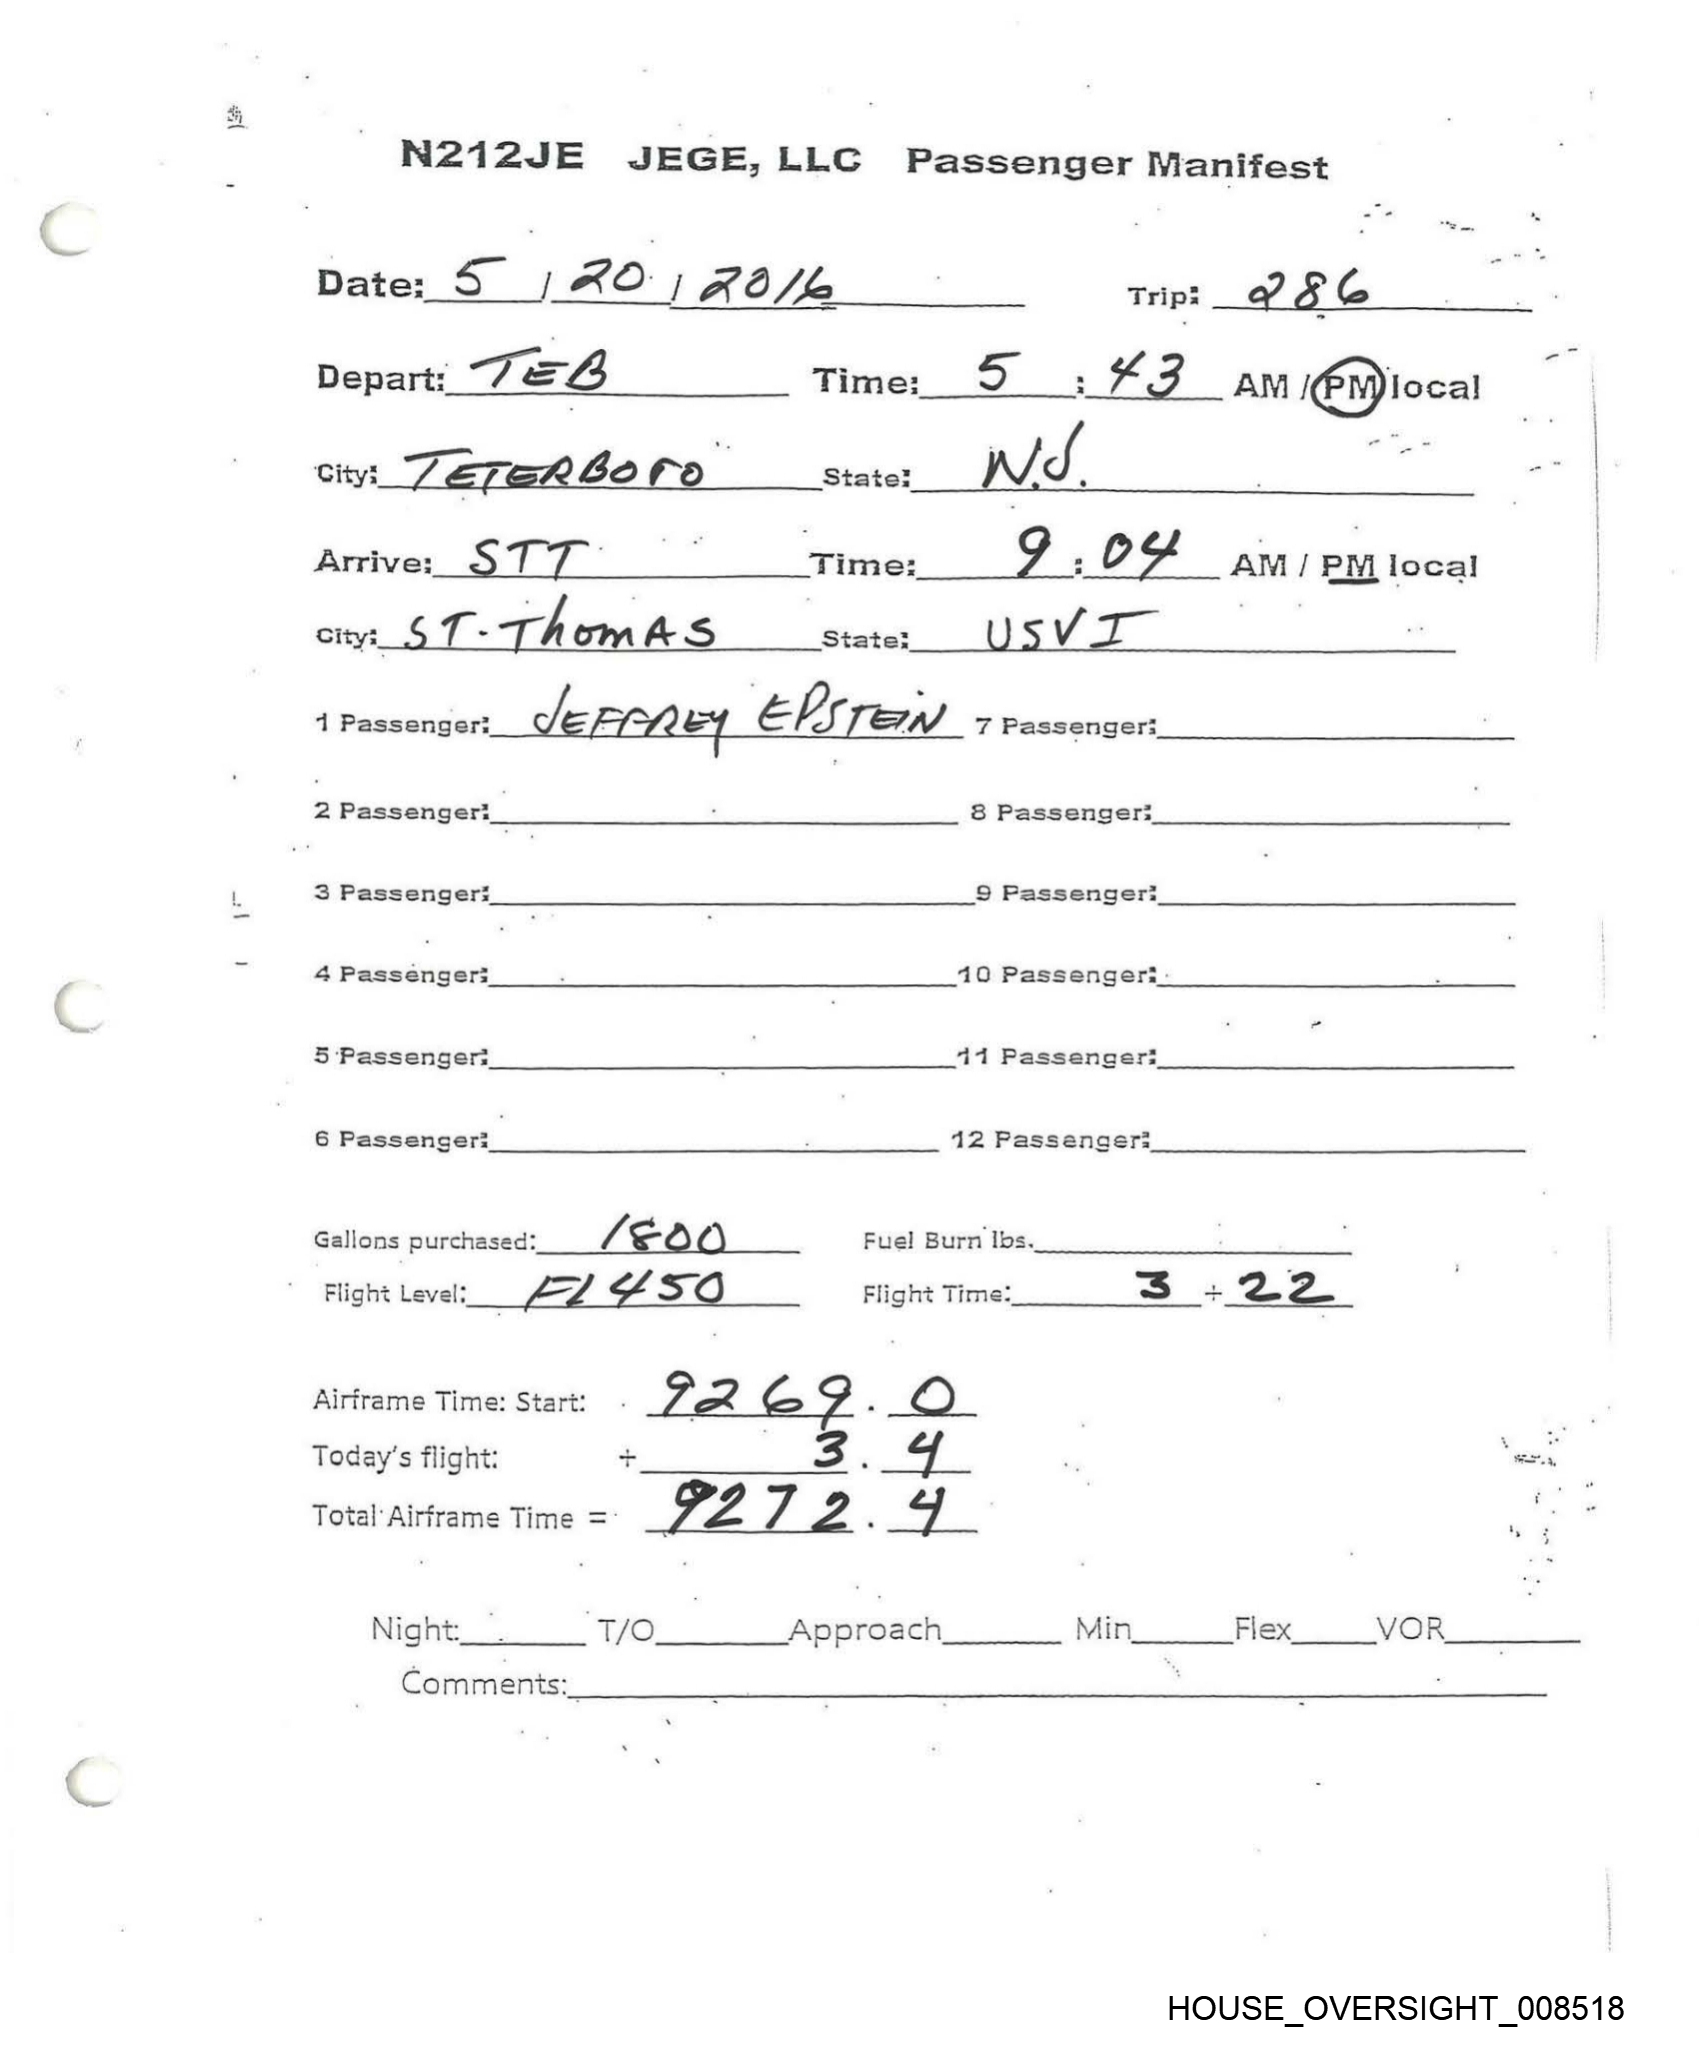 N212JE JEGE, LLC Passenger Manifest
Date: 5 / 20 / 2016 Trip: 286
Depart: TEB Time: 5 : 43 AM / PM local
City: TETERBORO State: N.J.
Arrive: STT Time: 9 : 04 AM / PM local
City: ST. ThomAS State: USVI
1 Passenger: JEFFREY EPSTEIN 7 Passenger:
2 Passenger: 8 Passenger:
3 Passenger: 9 Passenger:
4 Passenger: 10 Passenger:
5 Passenger: 11 Passenger:
6 Passenger: 12 Passenger:
Gallons purchased: 1800 Fuel Burn lbs.
Flight Level: FL450 Flight Time: 3 + 22
Airframe Time: Start: 9269.0
Today's flight: + 3.4
Total Airframe Time = 9272.4
Night: T/O Approach Min Flex VOR
Comments:
HOUSE_OVERSIGHT_008518